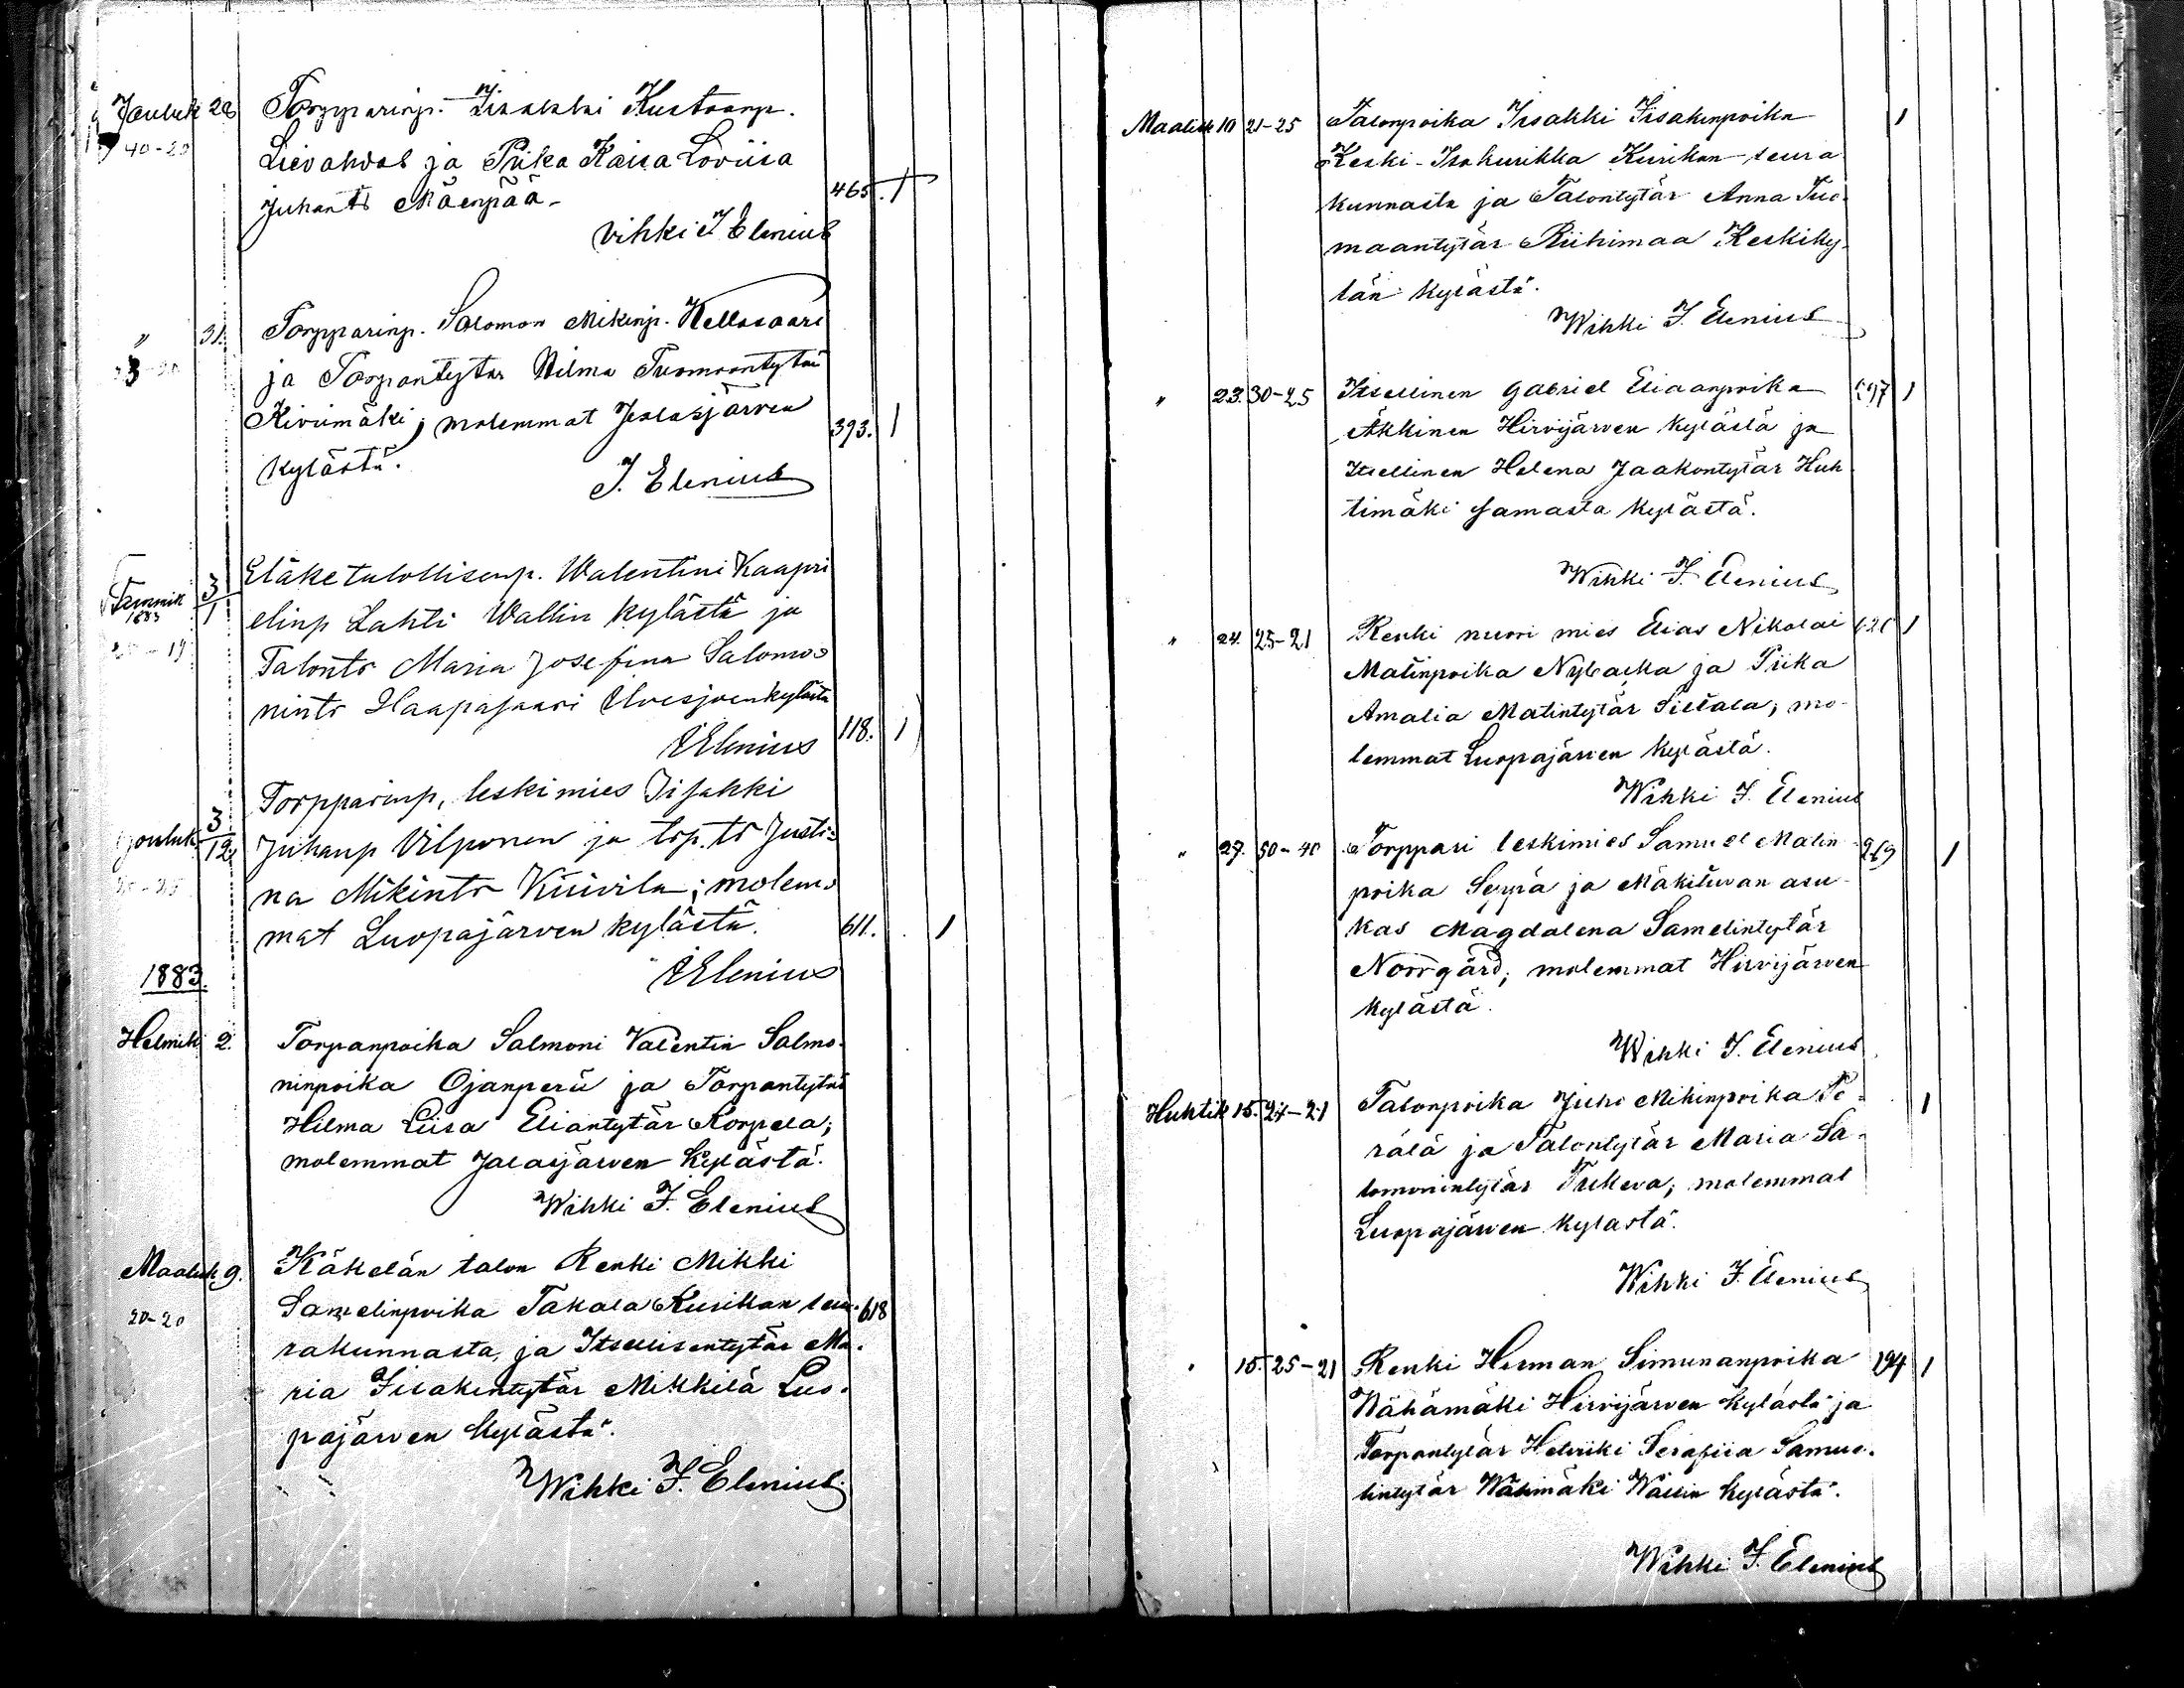 Jouluk 28 Torpparinp. Iisakki Kustaanp.
40-20 Lievahdes ja Piika Kaisa Loviisa
Juhantr Mäenpää - 465. 1
Vihki J Elenius
" 31. Torpparinp. Salomon Mikinp. Hellasaari
ja Torpantytär Wilma Tuomaantytär
Kivimäki; molemmat Jalasjärven 393. 1
kylästä.
J. Elenius
Tammik 1883 3/1 Eläketulollisenp. Walentini Kaapri
elinp Lahti Wallin kylästä ja
Talontr Maria Josefina Salomo=
nintr Haapasaari Ilvesjoenkylästä
JElenius 118. 1
Torpparinp, leskimies Iisakki
jouluk 3/12. Juhanp Vilponen ja trp.tr Justi=
na Mikintr Kiivila; molem=
mat Luopajärven kylästä. 611. 1
JElenius
1883.
Helmik. 2. Torpanpoika Salmoni Valentin Salmo-
ninpoika Ojanperä ja Torpantytär
Hilma Liisa Eliantytär Korpela;
molemmat Jalasjärven Kylästä.
Wihki J. Elenius
Maalisk. 9. Käkelän talon Renki Mikki
20-20 Samelinpoika Takala Kurikan seu- 618
rakunnasta, ja Itsellisentytär Ma-
ria Iisakintytär Mikkilä Luo-
pajärven Kylästä.
Wihki J. Elenius.
Maalisk 10 21-25 Talonpoika Iisakki Iisakinpoika 1
Keski-Isokurikka Kurikan seura
kunnasta ja Talontytär Anna Tuo-
maantytär Riihimaa Keskiky-
län kylästä.
Wihki J. Elenius
" 23. 30-25 Itsellinen Gabriel Eliaanpoika 1
Äkkinen Hirvijärven Kylästä ja
Itsellinen Helena Jaakontytär Huh
timäki samasta kylästä.
Wihki J. Elenius
" 24. 25-21 Renki nuori mies Elias Nikolai 1
Matinpoika Nybacka ja Piika
Amalia Matintytär Siltala; mo-
lemmat Luopajärven Kylästä.
Wihki J. Elenius
" 27. 50-40 Torppari leskimies Samuel Matin 269 1
poika Seppä ja Mäkituvan asu-
kas Magdalena Samelintytär
Norrgård; molemmat Hirvijärven
Kylästä.
Wihki J. Elenius
Huhtik 15. 24-21 Talonpoika Juho Mikinpoika Pe- 1
rälä ja Talontytär Maria Sa-
lomonintytär Tukeva; molemmat
Luopajärven kylästä.
Wihki J. Elenius
" 15. 25-21 Renki Herman Simunanpoika 194 1
Wähämäki Hirvijärven Kylästä ja
Torpantytär Helviiki Serafiia Samue-
lintytär Wähimäki Wallin Kylästä.
Wihki J. Elenius